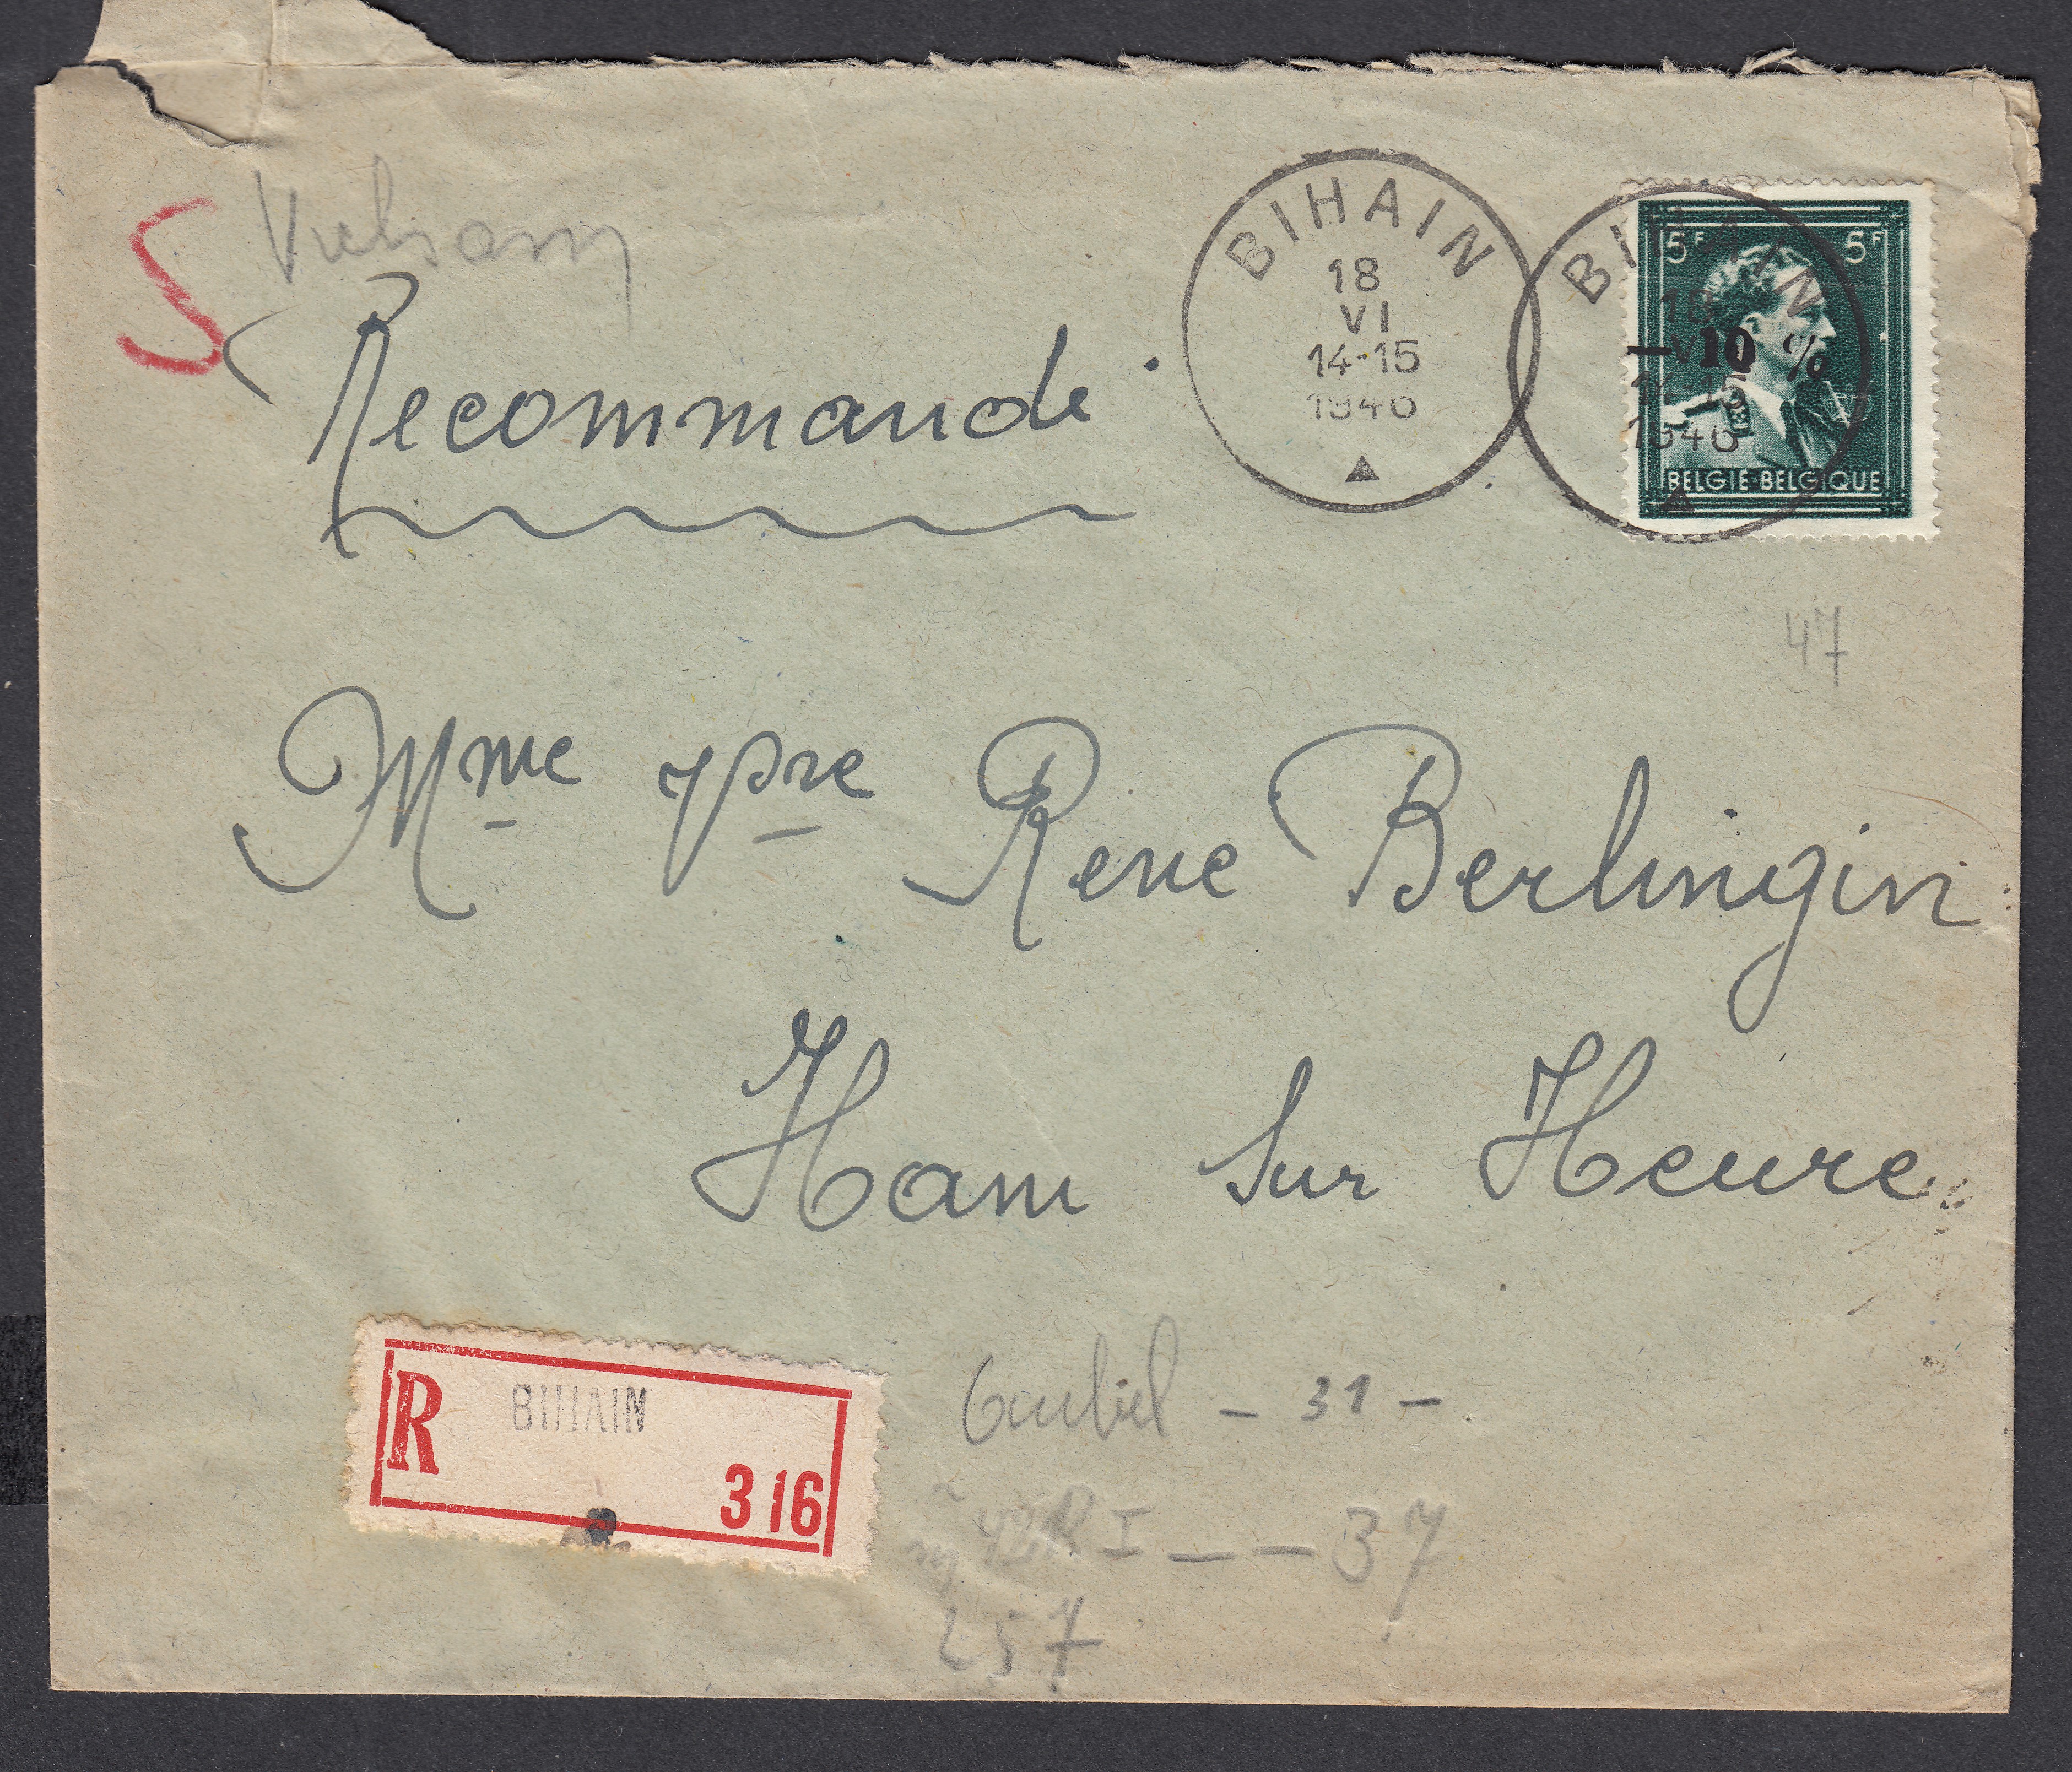 BIHAIN
18
VI
14-15
1946
BIHAIN
18
VI
14-15
1946
5F 5F
-10 %
BELGIE-BELGIQUE
Recommandé
47
Mme Vve René Berlingin
Ham sur Heure
R BIHAIN
316
- 31 -
I - - 37
257